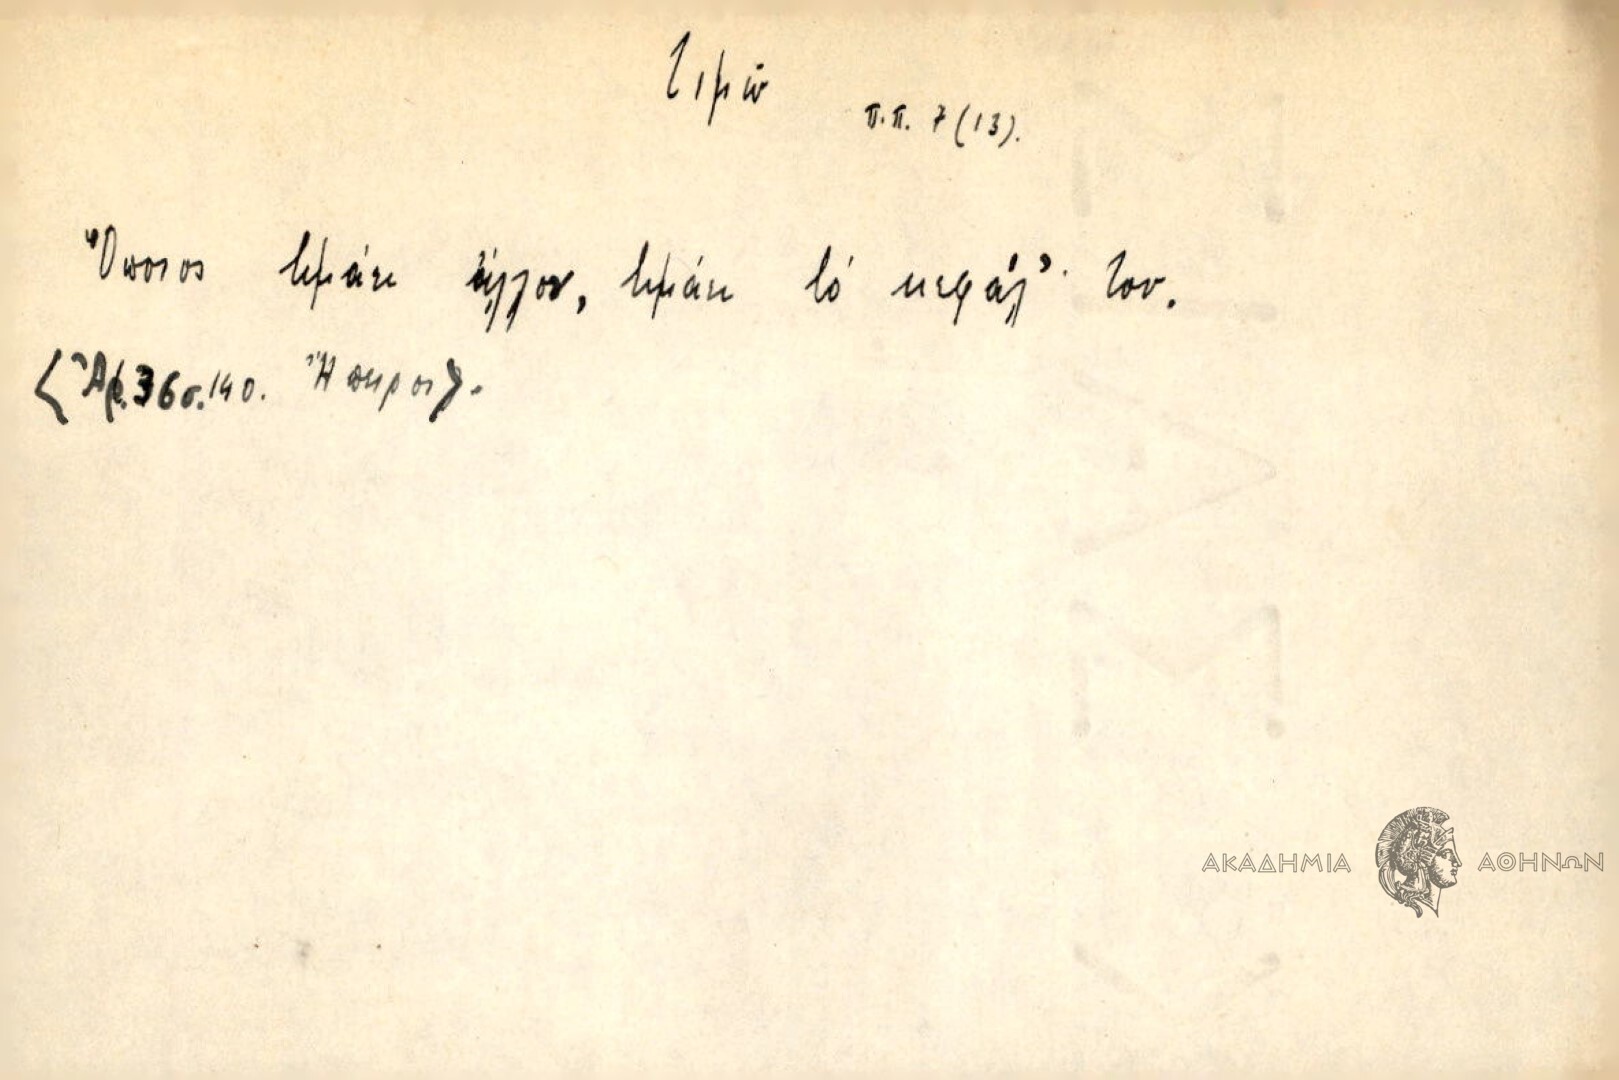 τιμῶ
π.π. 7 (13).
Ὅποιος τιμάει ἄλλον, τιμάει τὸ κεφάλ' του.
<Ἀρ. 36 σ. 140. Ἤπειρος>.
ΑΚΑΔΗΜΙΑ ΑΘΗΝΩΝ